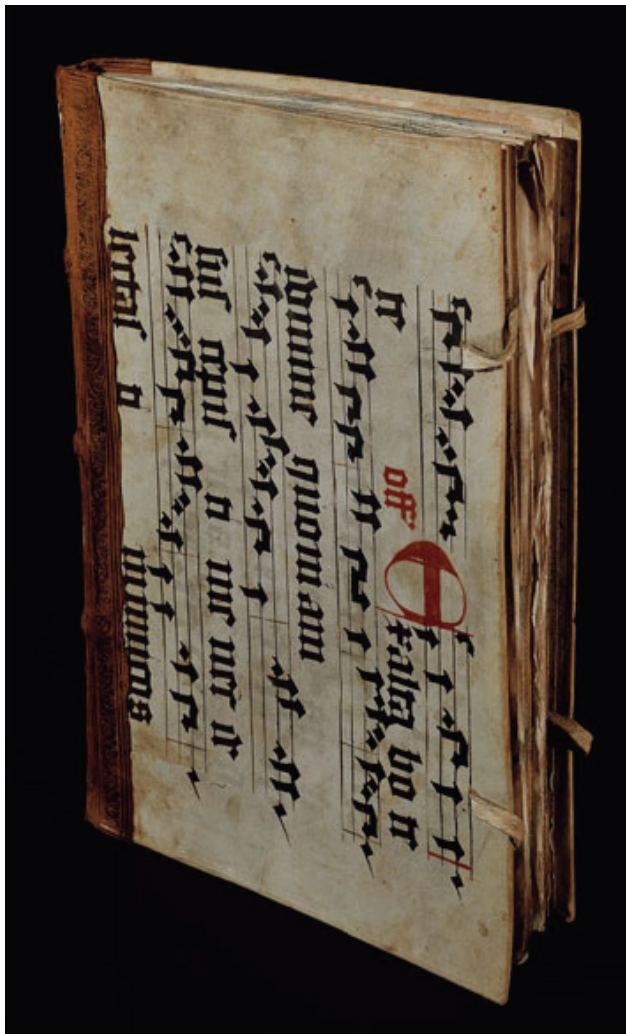 te off Exalta bo te
domine quoniam
ſuſ cepiſ ti me nec de
lectaſ ti inimicos